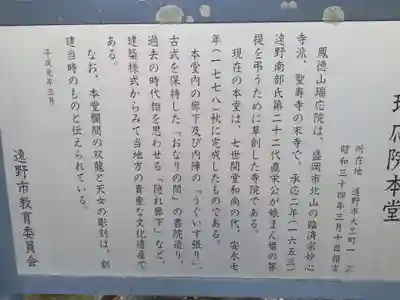 瑞応院本堂
所在地 遠野市大工町一
昭和三十四年三月十日指定
鳳徳山瑞応院は、盛岡市北山の臨済宗妙心
寺派、聖寿寺の末寺で、承応二年(一六五三)
遠野南部氏第二十二代直栄公が娘まん姫の菩
提を弔うために草創した寺院である。
現在の本堂は、七世関堂和尚の代、安永七
年(一七七八)秋に完成したものである。
本堂内の廊下及び内陣の「うぐいす張り」、
古式を保持した「おなりの間」の書院造り、
過去の時代相を思わせる「隠れ廊下」など、
建築様式からみて当地方の貴重な文化遺産で
ある。
なお、本堂欄間の双龍と天女の彫刻は、創
建当時のものと伝えられている。
平成元年三月
遠野市教育委員会